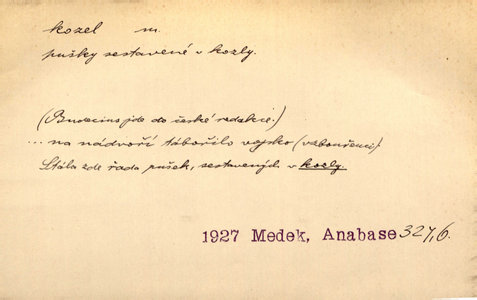 kozel m.
pušky sestavené v kozly.
(Budecius jde do české redakce.)
... na nádvoří tábořilo vojsko (vzbouřenci).
Stála zde řada pušek, sestavených v kozly.
1927 Medek, Anabase 327,6.